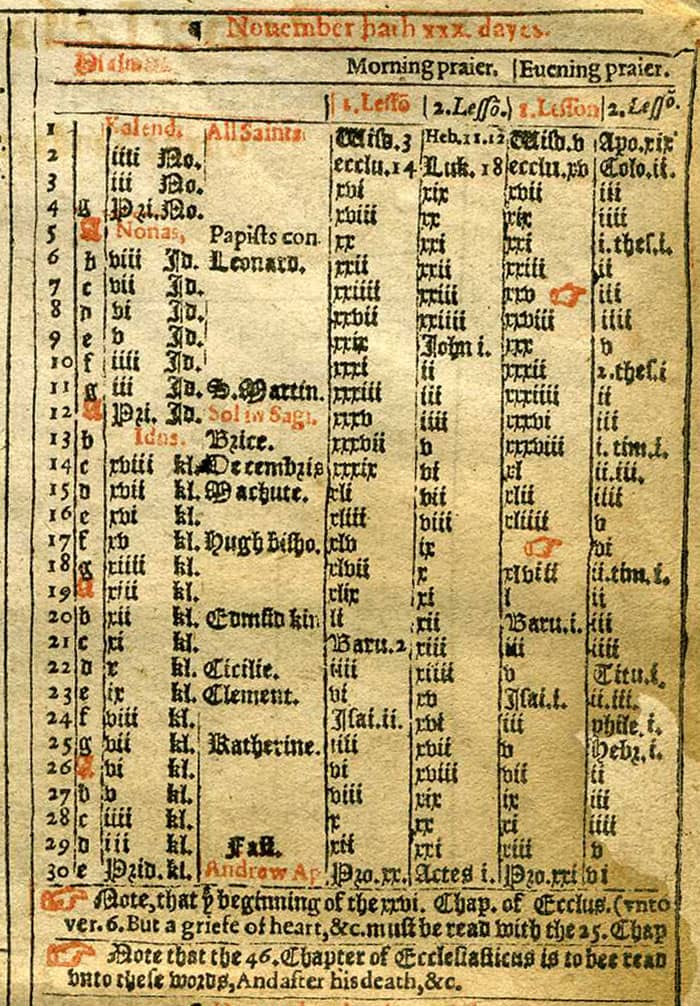 ¶ Nouember hath xxx. dayes.
Psalmes
Morning praier. | Euening praier.
1. Lessō | 2. Lessō. | 1. Lesson | 2. Lessō.
1 Kalend. All Saints Wisd. 3 Heb. 11. 12 Wisd. v Apo. xix
2 iiii No. ecclu. 14 Luk. 18 ecclu. xv Colo. ii.
3 iii No. xvi xix xvii iii
4 g Pri. No. xviii xx xix iiii
5 A Nonas, Papists con. xx xxi xxi i. thes. i.
6 b viii Jd. Leonard. xxii xxii xxiii ii
7 c vii Jd. xxiiii xxiii xxv ☞ iii
8 d vi Jd. xxvii xxiiii xxviii iiii
9 e v Jd. xxix John i. xxx v
10 f iiii Jd. xxxi ii xxxii 2. thes. i
11 g iii Jd. S. Martin. xxxiii iii xxxiiii ii
12 A Pri. Jd. Sol in Sagi. xxxv iiii xxxvi iii
13 b Idus. Brice. xxxvii v xxxviii i. tim. i.
14 c xviii kl. Decembris xxxix vi xl ii. iii.
15 d xvii kl. Machute. xli vii xlii iiii
16 e xvi kl. xliii viii xliiii v
17 f xv kl. Hugh bisho. xlv ix ☞ vi
18 g xiiii kl. xlvii x xlviii ii. tim. i.
19 A xiii kl. xlix xi l ii
20 b xii kl. Edmūd kin li xii Baru. i. iii
21 c xi kl. Baru. 2 xiii iii iiii
22 d x kl. Cicilie. iiii xiiii v Titu. i.
23 e ix kl. Clement. vi xv Isai. i. ii. iii.
24 f viii kl. Isai. ii. xvi iii phile. i.
25 g vii kl. Katherine. iiii xvii v Hebr. i.
26 A vi kl. vi xviii vii ii
27 b v kl. viii xix ix iii
28 c iiii kl. x xx xi iiii
29 d iii kl. Fast. xii xxi xiii v
30 e Prid. kl. Andrew Ap Pro. xx. Actes i. Pro. xxi vi
☞ Note, that yͤ beginning of the xxvi. Chap. of Ecclus. (vnto
ver. 6. But a griefe of heart, &c. must be read with the 25. Chap
☞ Note that the 46. Chapter of Ecclesiasticus is to bee read
vnto these words, And after his death, &c.